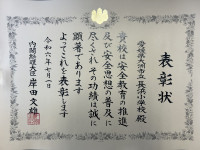 表彰状
愛媛県大洲市立長浜小学校 殿
貴校は安全教育の推進
及び安全思想の普及に
尽くされ その功績は誠に
顕著であります
よってこれを表彰します
令和六年七月一日
内閣総理大臣 岸田文雄